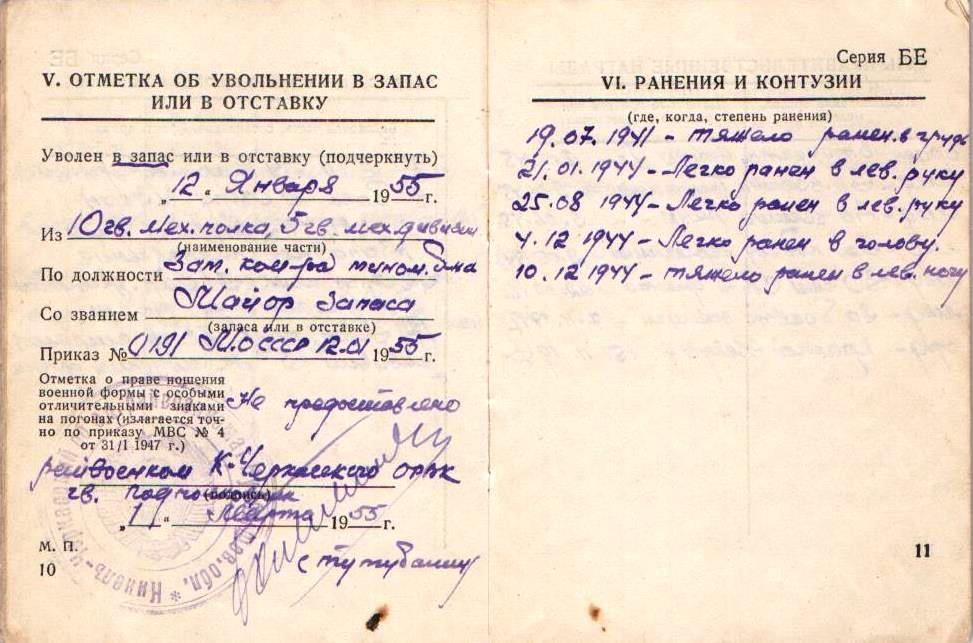 V. ОТМЕТКА ОБ УВОЛЬНЕНИИ В ЗАПАС
ИЛИ В ОТСТАВКУ
Уволен в запас или в отставку (подчеркнуть)
„12“ Января 1955 г.
Из 10 гв. мех. полка, 5 гв. мех. дивизии
(наименование части)
По должности Зам. ком-ра мином. б-на
Со званием Майор запаса
(запаса или в отставке)
Приказ № 0191 МО СССР 12.01 1955 г.
Отметка о праве ношения
военной формы с особыми
отличительными знаками
на погонах (излагается точ-
но по приказу МВС № 4
от 31/I 1947 г.)
Не предоставлено
райвоенком К-Черкасского
гв. подполковник
(подпись)
„1“ Марта 1955 г.
М. П.
10
Серия БЕ
VI. РАНЕНИЯ И КОНТУЗИИ
(где, когда, степень ранения)
19.07. 1941 - тяжело ранен в грудь
21.01. 1944 - Легко ранен в лев. руку
25.08 1944 - Легко ранен в лев. руку
4.12 1944 - Легко ранен в голову.
10.12 1944 - тяжело ранен в лев. ногу
11